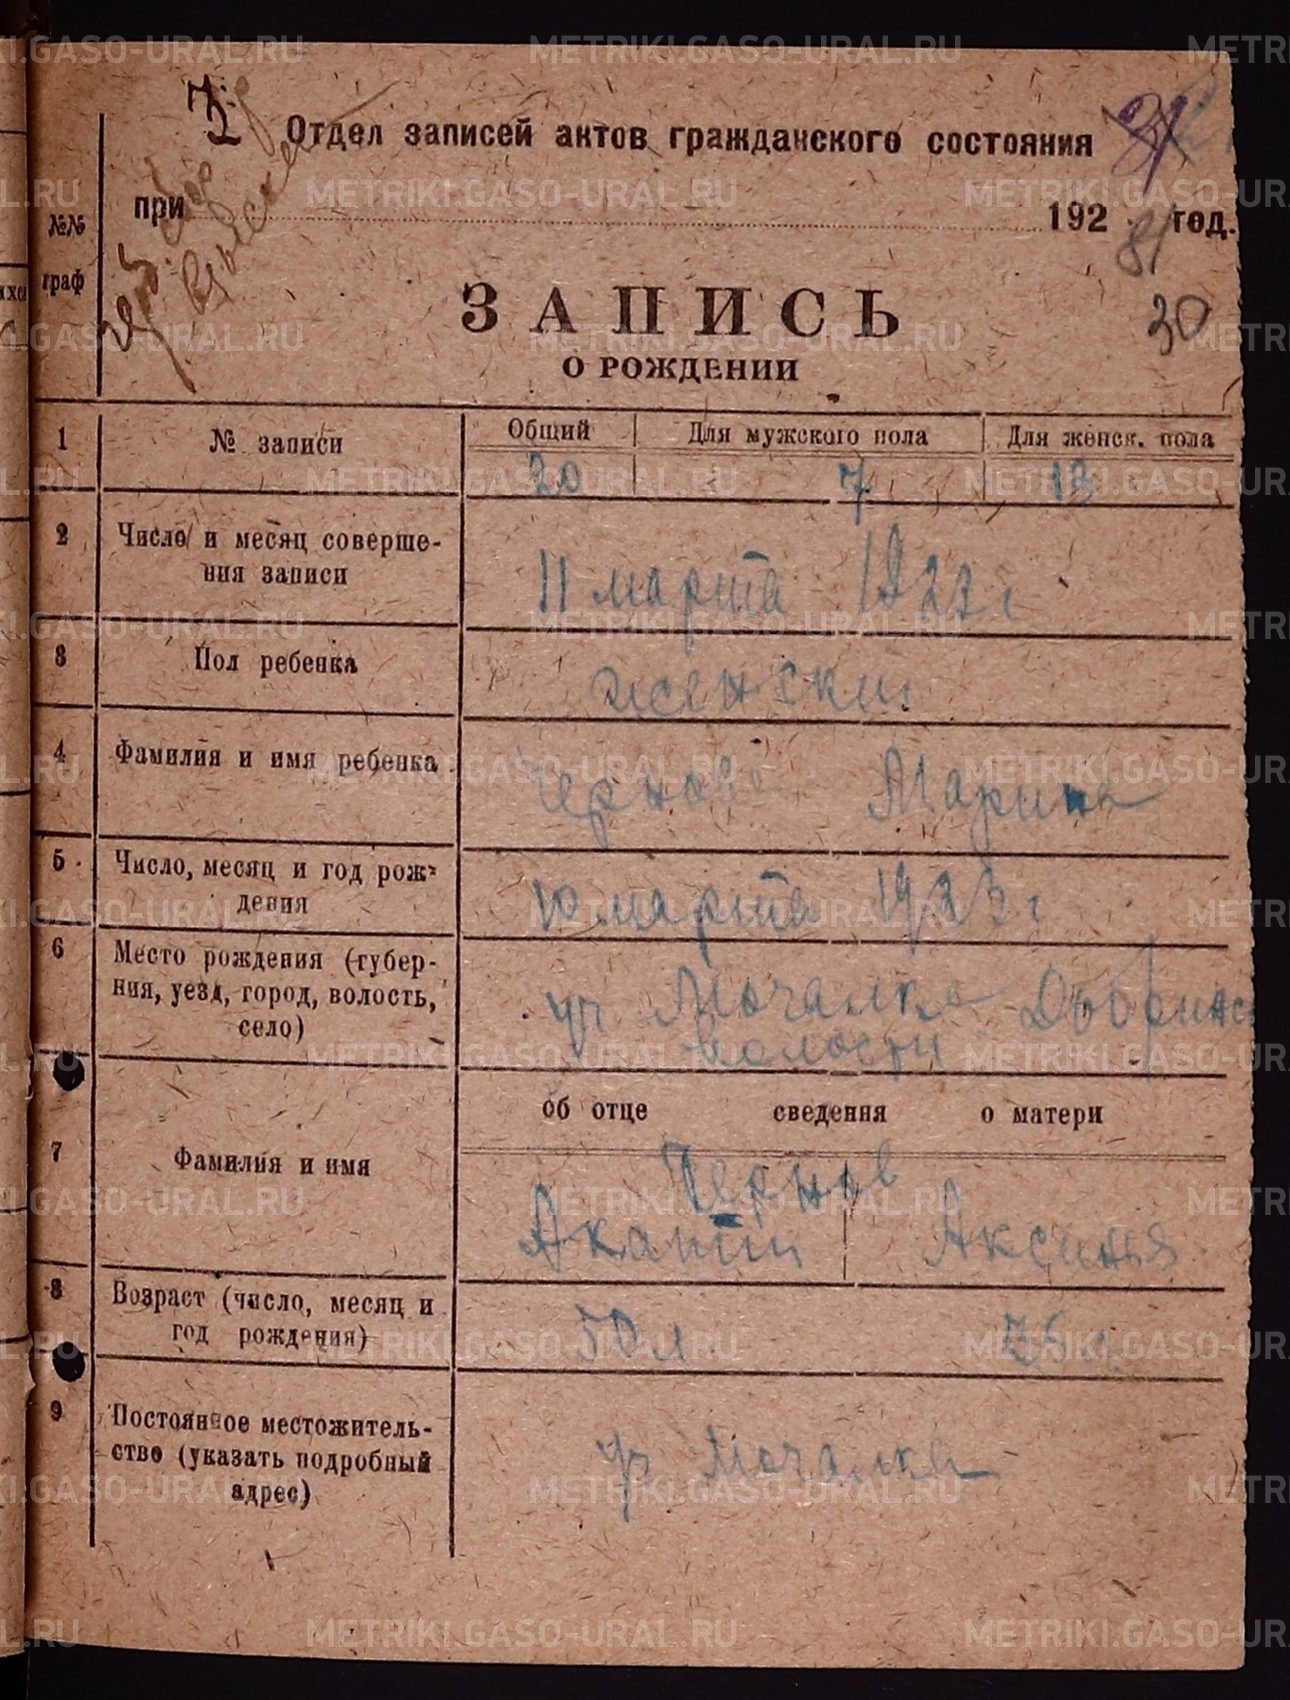 Отдел записей актов гражданского состояния
31
при 192 год.
81
30
№№ граф
ЗАПИСЬ
О РОЖДЕНИИ
1 № записи Общий Для мужского пола Для женск. пола
20 7 13
2 Число и месяц соверше-
ния записи
11 марта 1923 г
3 Пол ребенка
женски
4 Фамилия и имя ребенка
Чернова Марина
5 Число, месяц и год рож-
дения
10 марта 1923 г
6 Место рождения (губер-
ния, уезд, город, волость,
село)
Мочалка
волости
об отце сведения о матери
7 Фамилия и имя
Чернов
Аксинья
8 Возраст (число, месяц и
год рождения)
50 л
9 Постоянное местожитель-
ство (указать подробный
адрес)
Мочалка
METRIKI.GASO-URAL.RU